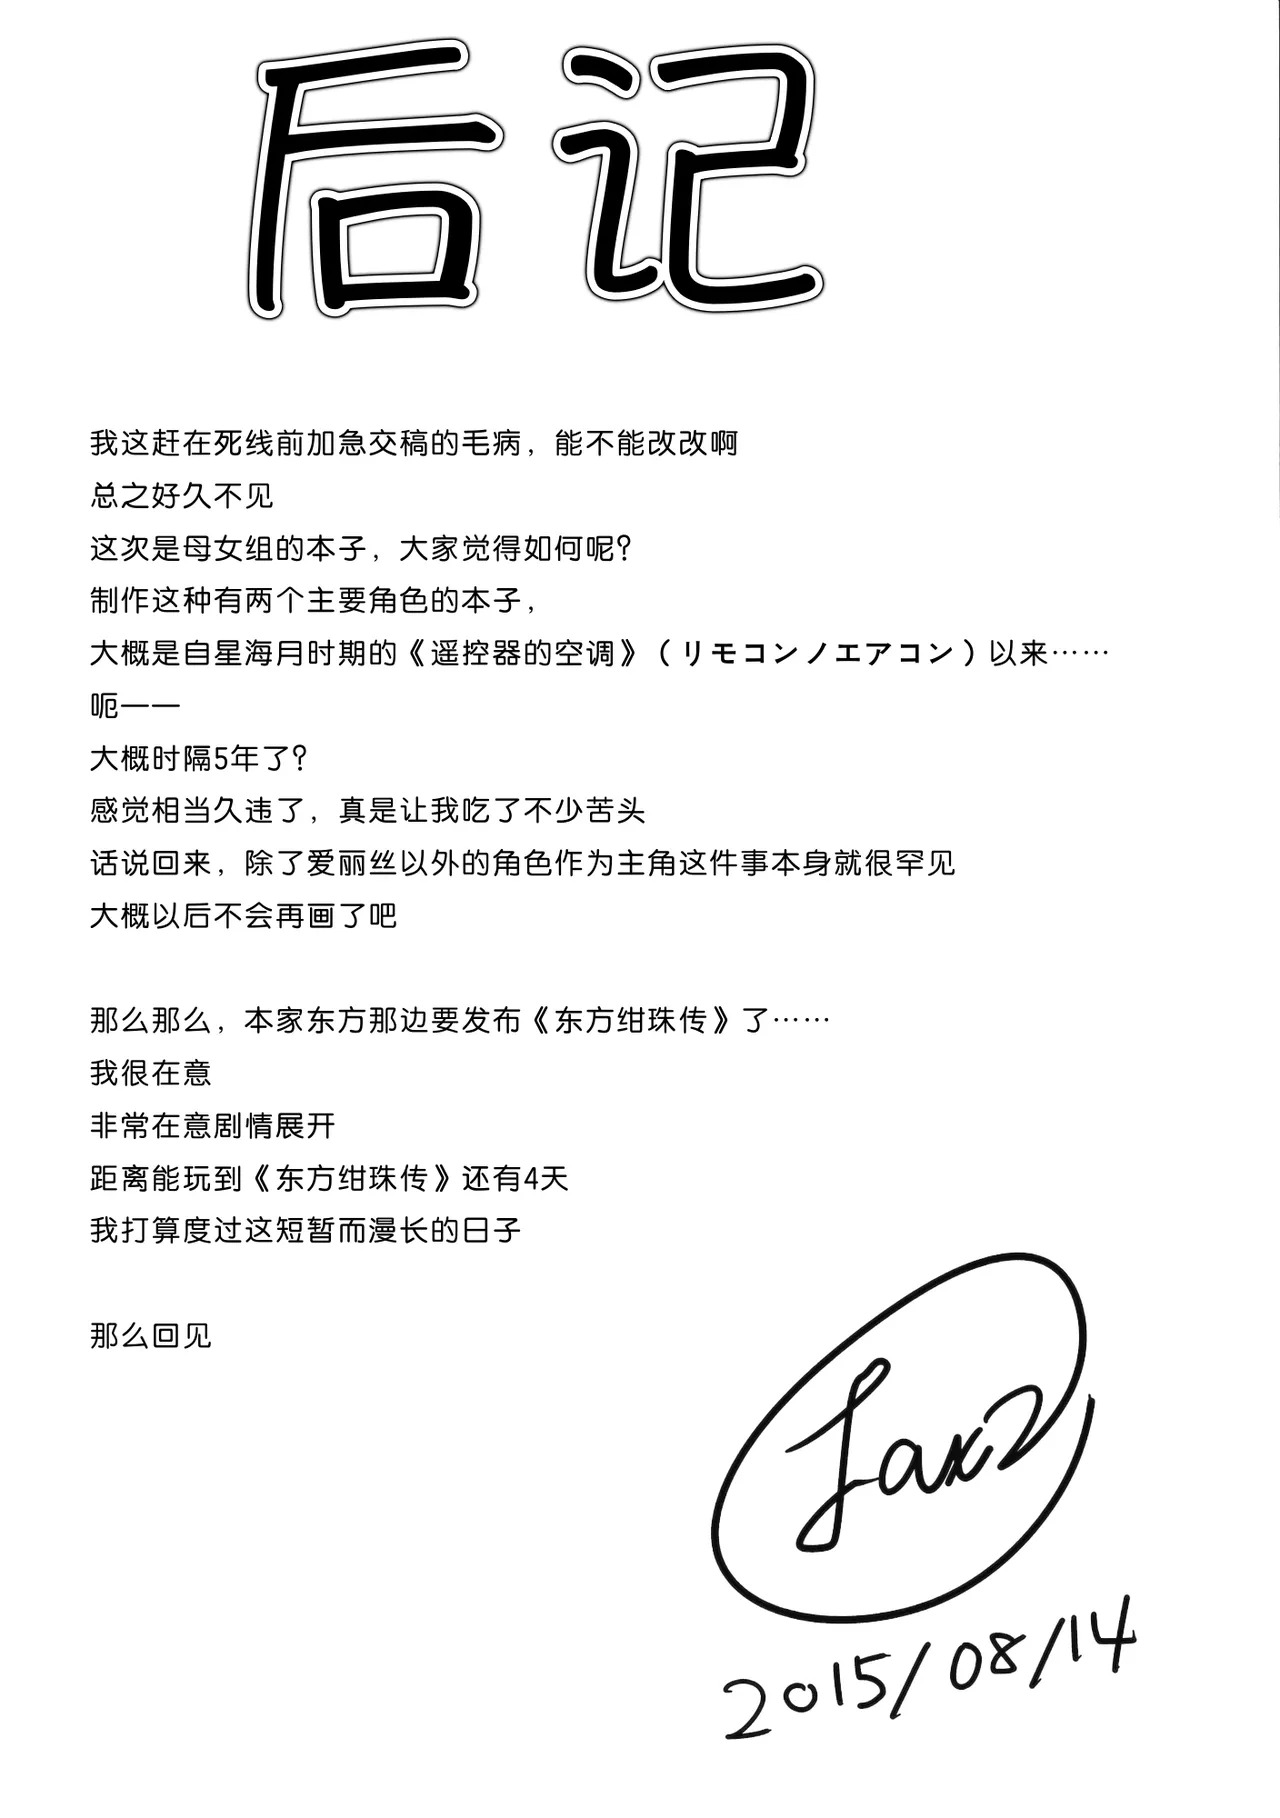 后记
我这赶在死线前加急交稿的毛病，能不能改改啊
总之好久不见
这次是母女组的本子，大家觉得如何呢？
制作这种有两个主要角色的本子，
大概是自星海月时期的《遥控器的空调》（リモコンノエアコン）以来……
呃——
大概时隔5年了？
感觉相当久违了，真是让我吃了不少苦头
话说回来，除了爱丽丝以外的角色作为主角这件事本身就很罕见
大概以后不会再画了吧
那么那么，本家东方那边要发布《东方绀珠传》了……
我很在意
非常在意剧情展开
距离能玩到《东方绀珠传》还有4天
我打算度过这短暂而漫长的日子
那么回见
fax2
2015/08/14